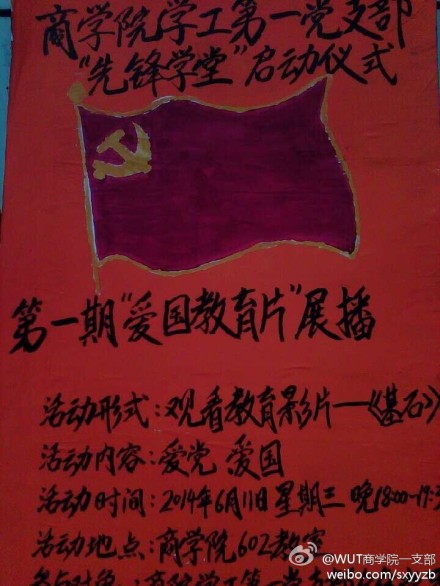 商学院学工第一党支部
“先锋学堂”启动仪式
第一期“爱国教育片”展播
活动形式:观看教育影片—《基石》
活动内容:爱党 爱国
活动时间:2014年6月11日 星期三 晚18:00-17:3
活动地点:商学院602教室
参与对象:商学院学工第一党支部
@WUT商学院一支部
weibo.com/sxyyzb